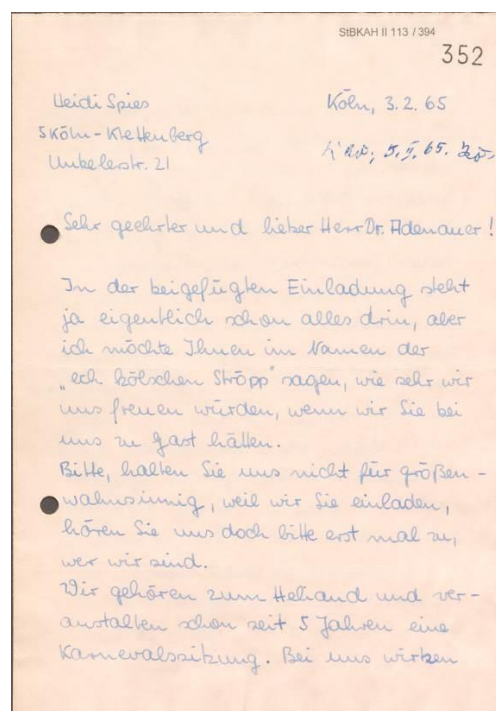 StBKAH II 113 / 394
352
Heidi Spies
Köln, 3. 2. 65
5 Köln - Klettenberg
Unkelerstr. 21
5. II. 65.
Sehr geehrter und lieber Herr Dr. Adenauer!
In der beigefügten Einladung steht
ja eigentlich schon alles drin, aber
ich möchte Ihnen im Namen der
„ech kölschen Ströpp" sagen, wie sehr wir
uns freuen würden, wenn wir Sie bei
uns zu Gast hätten.
Bitte, halten Sie uns nicht für größen-
wahnsinnig, weil wir Sie einladen,
hören Sie uns doch bitte erst mal zu,
wer wir sind.
Wir gehören zum Heliand und ver-
anstalten schon seit 5 Jahren eine
Karnevalssitzung. Bei uns wirken